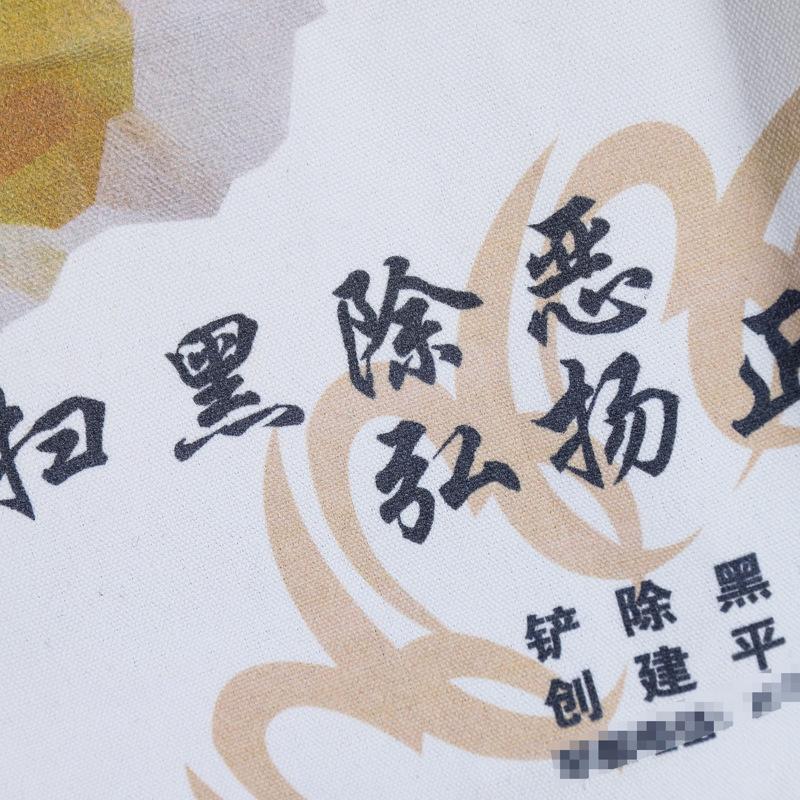 扫黑除恶
弘扬正
铲除黑
创建平